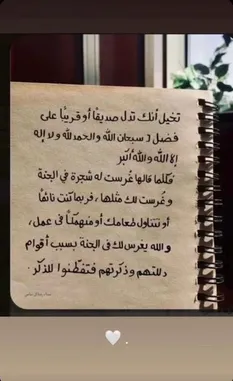 تخيل أنك تدل صديقًا أو قريبًا على
فضل [ سبحان الله والحمد لله ولا إله
إلا الله والله أكبر
فكلما قالها غُرست له شجرة في الجنة
وغُرست لك مثلها، فربما كنت نائمًا
أو تتناول طعامك أو منهمكًا في عمل،
والله يغرس لك في الجنة بسبب أقوام
دللتهم وذكرتهم فتفطّنوا للذكر.